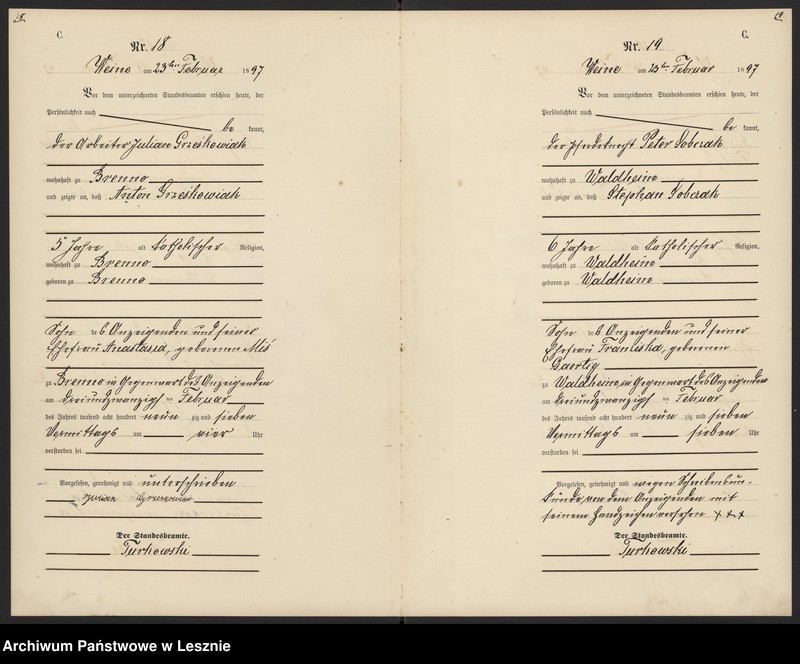 18.
C.
Nr. 18
Weine am 23ten Februar 1897
Vor dem unterzeichneten Standesbeamten erschien heute, der
Persönlichkeit nach
be kannt,
der Arbeiter Julian Grześkowiak
wohnhaft zu Brenno
und zeigte an, daß Anton Grześkowiak
5 Jahre alt katholischer Religion,
wohnhaft zu Brenno
geboren zu Brenno
Sohn des Anzeigenden und seiner
Ehefrau Anastasia, geborenen Miś
zu Brenno in Gegenwart des Anzeigenden
am dreiundzwanzigsten Februar
des Jahres tausend acht hundert neun zig und sieben
Vormittags um vier Uhr
verstorben sei
Vorgelesen, genehmigt und unterschrieben
Julian Grześkowiak
Der Standesbeamte.
Turkowski
19.
C.
Nr. 19
Weine am 23ten Februar 1897
Vor dem unterzeichneten Standesbeamten erschien heute, der
Persönlichkeit nach
be kannt,
der Pferdeknecht Peter Sobczak
wohnhaft zu Waldheim
und zeigte an, daß Stephan Sobczak
6 Jahre alt katholischer Religion,
wohnhaft zu Waldheim
geboren zu Waldheim
Sohn des Anzeigenden und seiner
Ehefrau Franziska, geborenen
zu Waldheim, in Gegenwart des Anzeigenden
am dreiundzwanzigsten Februar
des Jahres tausend acht hundert neun zig und sieben
Vormittags um sieben Uhr
verstorben sei
Vorgelesen, genehmigt und wegen Schreibenun-
kunde, von dem Anzeigenden mit
seinem Handzeichen versehen +++
Der Standesbeamte.
Turkowski
Archiwum Państwowe w Lesznie